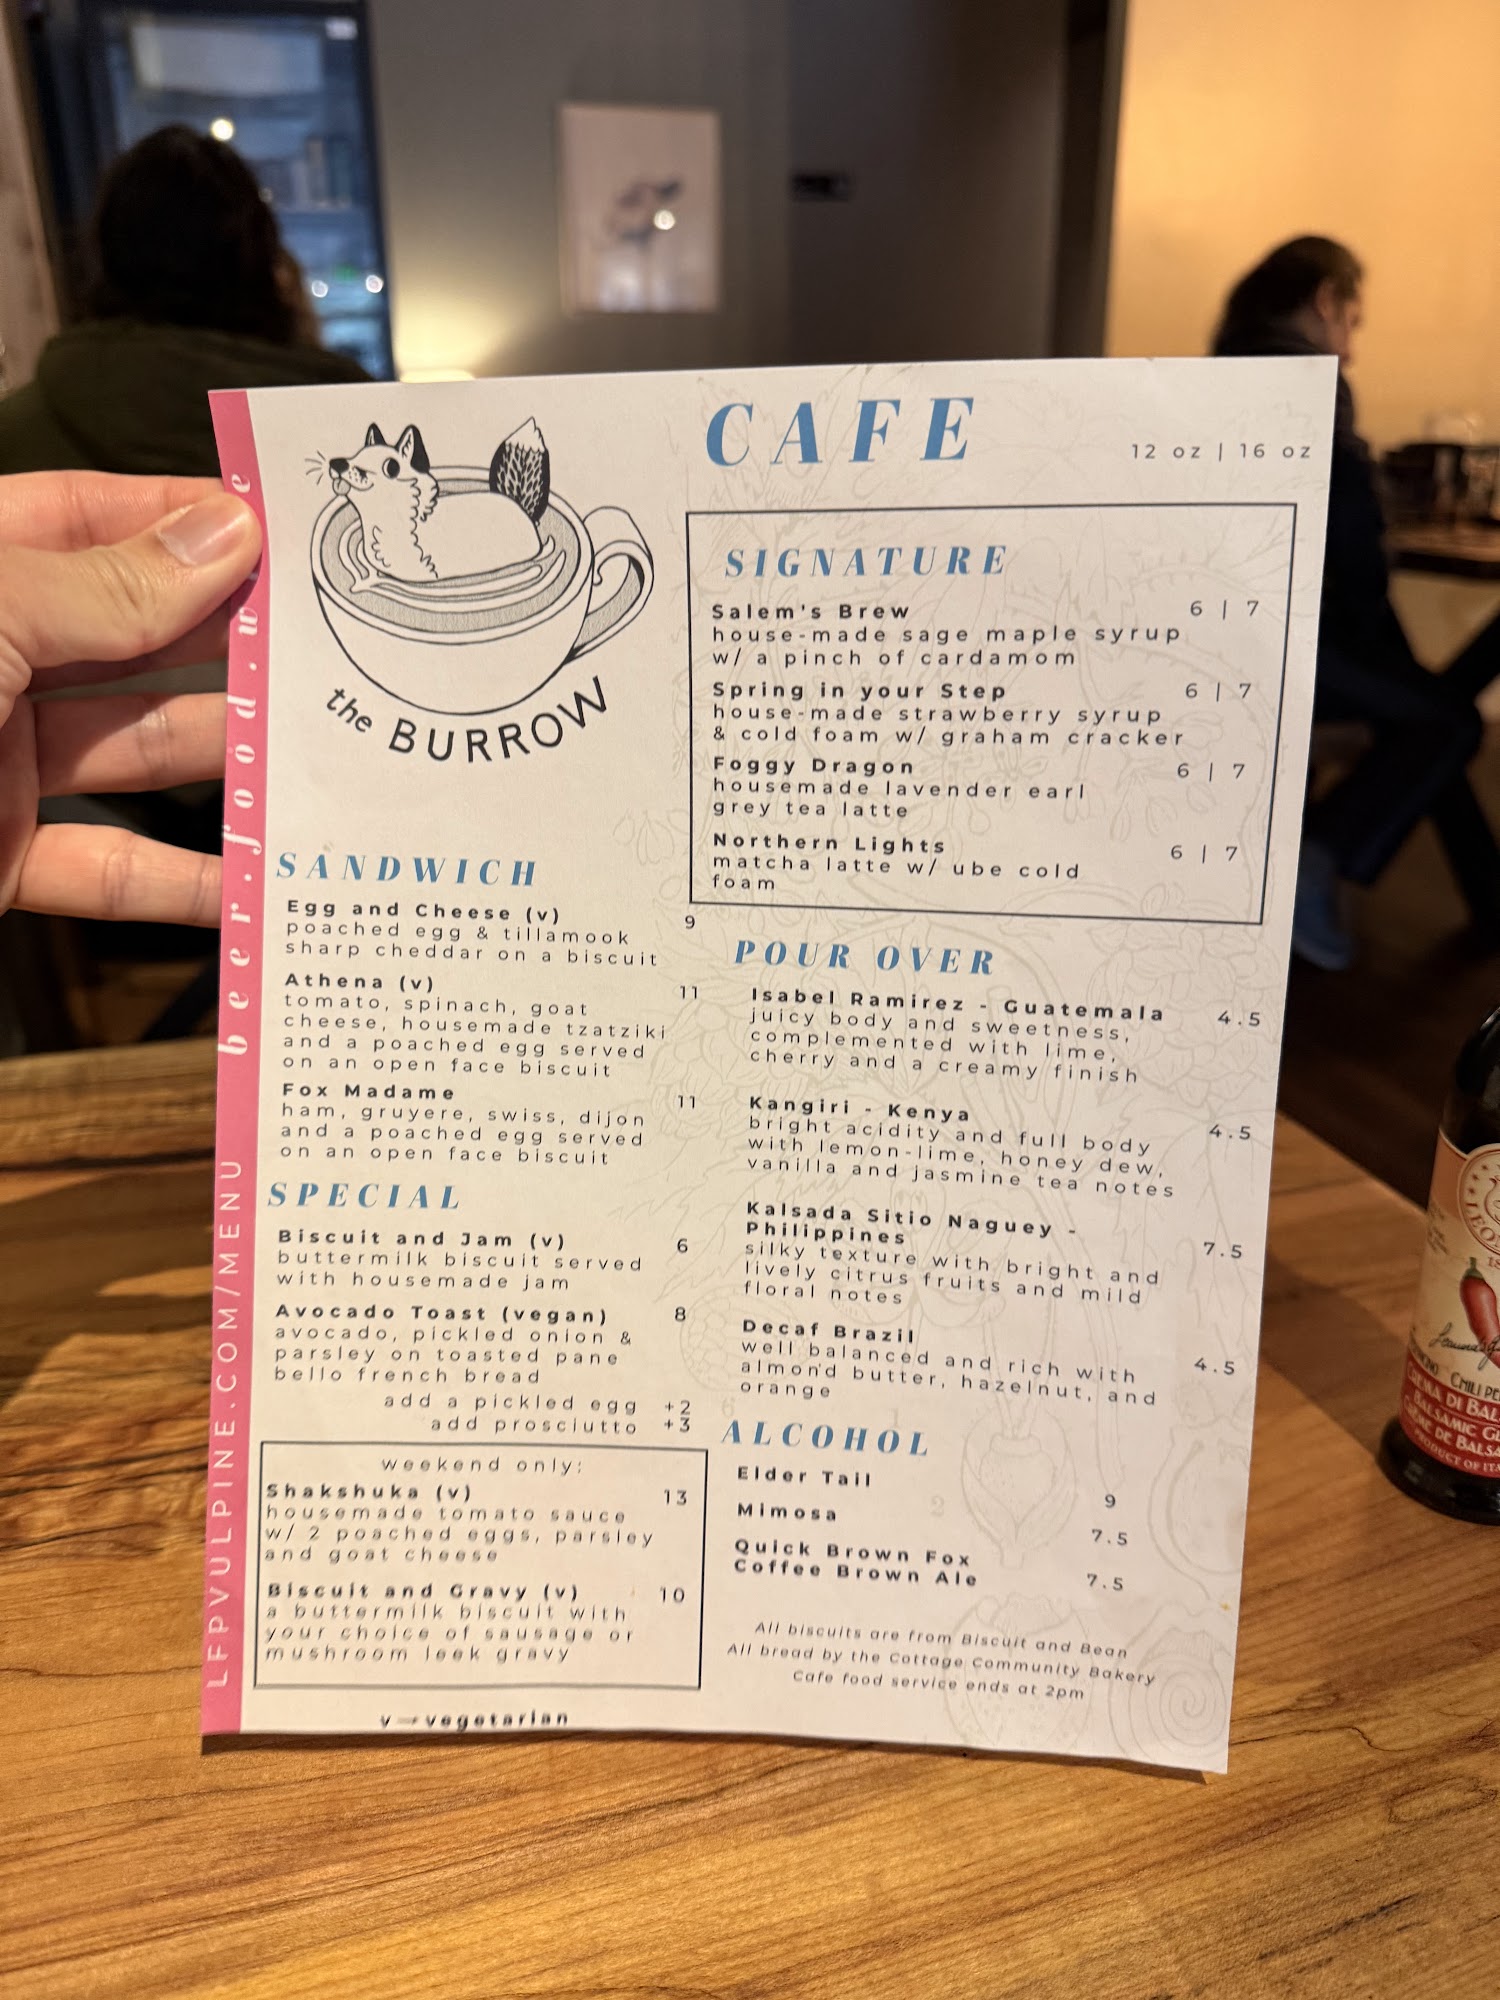 the BURROW
CAFE
12 oz | 16 oz
SIGNATURE
Salem's Brew 6 | 7
house-made sage maple syrup
w/ a pinch of cardamom
Spring in your Step 6 | 7
house-made strawberry syrup
& cold foam w/ graham cracker
Foggy Dragon 6 | 7
housemade lavender earl
grey tea latte
Northern Lights 6 | 7
matcha latte w/ ube cold
foam
SANDWICH
Egg and Cheese (v) 9
poached egg & tillamook
sharp cheddar on a biscuit
Athena (v) 11
tomato, spinach, goat
cheese, housemade tzatziki
and a poached egg served
on an open face biscuit
Fox Madame 11
ham, gruyere, swiss, dijon
and a poached egg served
on an open face biscuit
SPECIAL
Biscuit and Jam (v) 6
buttermilk biscuit served
with housemade jam
Avocado Toast (vegan) 8
avocado, pickled onion &
parsley on toasted pane
bello french bread
add a pickled egg +2
add prosciutto +3
weekend only:
Shakshuka (v) 13
housemade tomato sauce
w/ 2 poached eggs, parsley
and goat cheese
Biscuit and Gravy (v) 10
a buttermilk biscuit with
your choice of sausage or
mushroom leek gravy
v - vegetarian
POUR OVER
Isabel Ramirez - Guatemala 4.5
juicy body and sweetness,
complemented with lime,
cherry and a creamy finish
Kangiri - Kenya 4.5
bright acidity and full body
with lemon-lime, honey dew,
vanilla and jasmine tea notes
Kalsada Sitio Naguey -
Philippines 7.5
silky texture with bright and
lively citrus fruits and mild
floral notes
Decaf Brazil 4.5
well balanced and rich with
almond butter, hazelnut, and
orange
ALCOHOL
Elder Tail 9
Mimosa 7.5
Quick Brown Fox
Coffee Brown Ale 7.5
All biscuits are from Biscuit and Bean
All bread by the Cottage Community Bakery
Cafe food service ends at 2pm
LFPVULPINE.COM/MENU beer.food.
CHILI PE
PRODUCT OF ITA